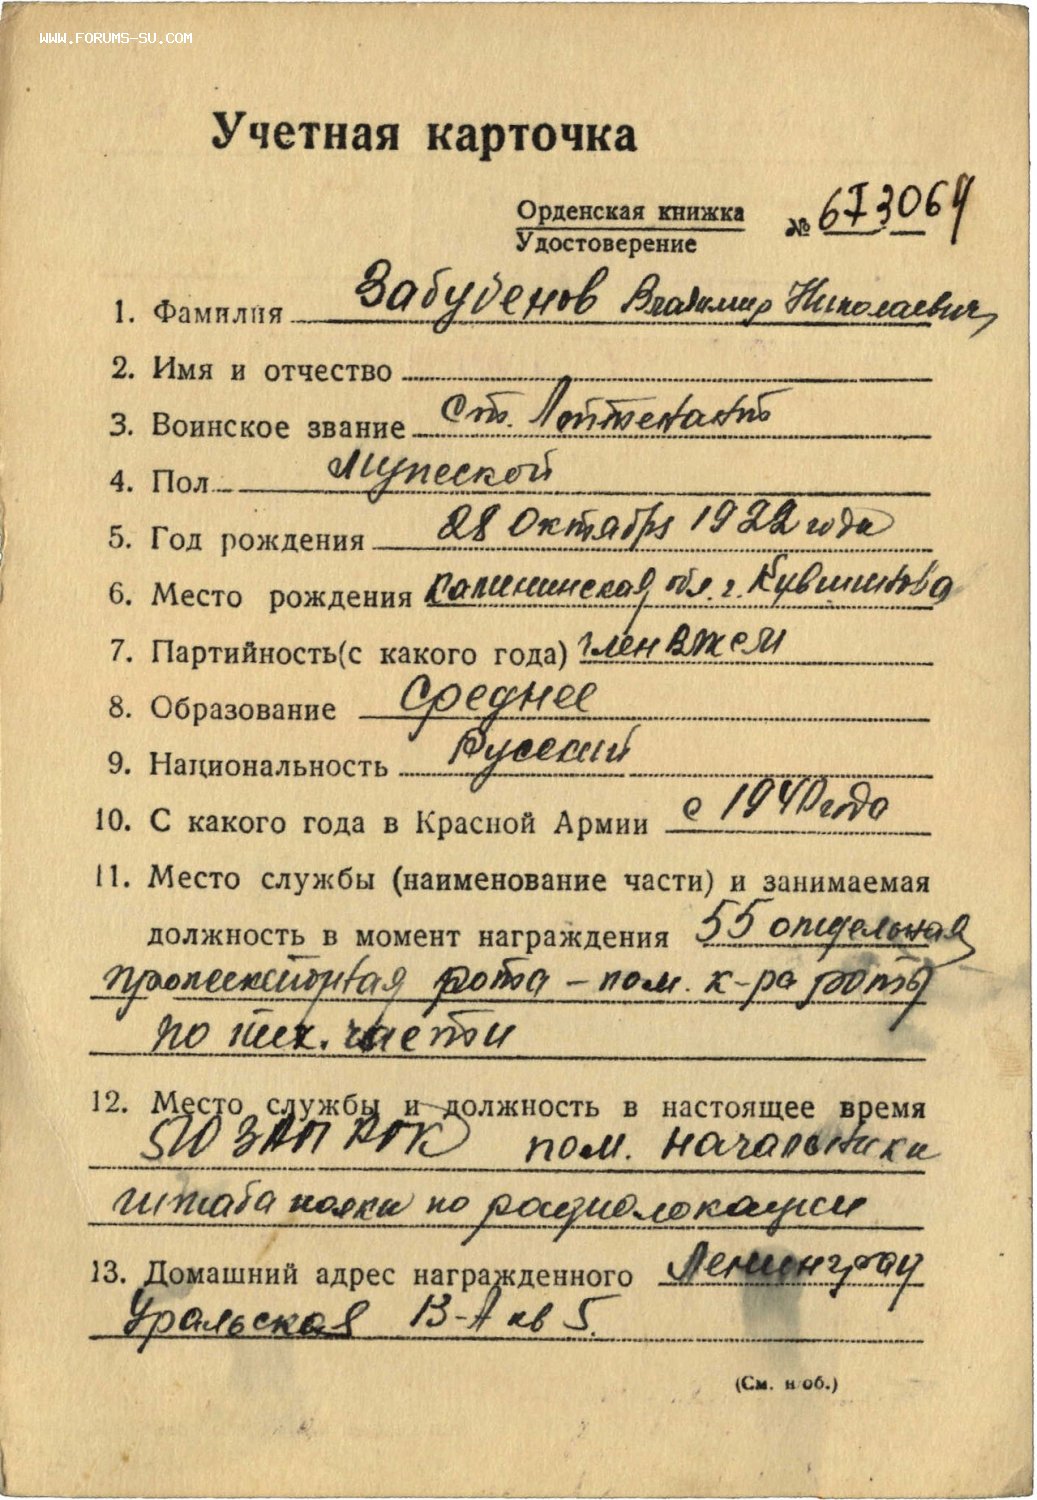 WWW.FORUMS-SU.COM
Учетная карточка
Орденская книжка № 673064
Удостоверение
1. Фамилия Забубенов Владимир Николаевич
2. Имя и отчество
3. Воинское звание Ст. Лейтенант
4. Пол Мужской
5. Год рождения 28 Октября 1922 года
6. Место рождения Калининская обл. г. Кувшиново
7. Партийность(с какого года) член ВЛКСМ
8. Образование Среднее
9. Национальность Русский
10. С какого года в Красной Армии с 1940 года
11. Место службы (наименование части) и занимаемая
должность в момент награждения 55 отдельная
прожекторная рота – пом. к-ра роты
по тех. части
12. Место службы и должность в настоящее время
ЗАП РГК пом. начальника
штаба полка по радиолокации
13. Домашний адрес награжденного Ленинград
Уральская 13-А кв 5.
(См. н об.)